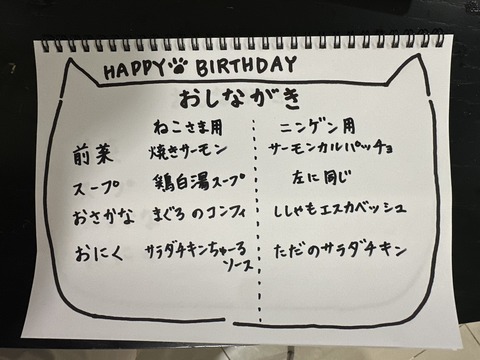 HAPPY BIRTHDAY
おしながき
ねこさま用 ニンゲン用
前菜 焼きサーモン サーモンカルパッチョ
スープ 鶏白湯スープ 左に同じ
おさかな まぐろのコンフィ ししゃもエスカベッシュ
おにく サラダチキンちゅーる ただのサラダチキン
ソース